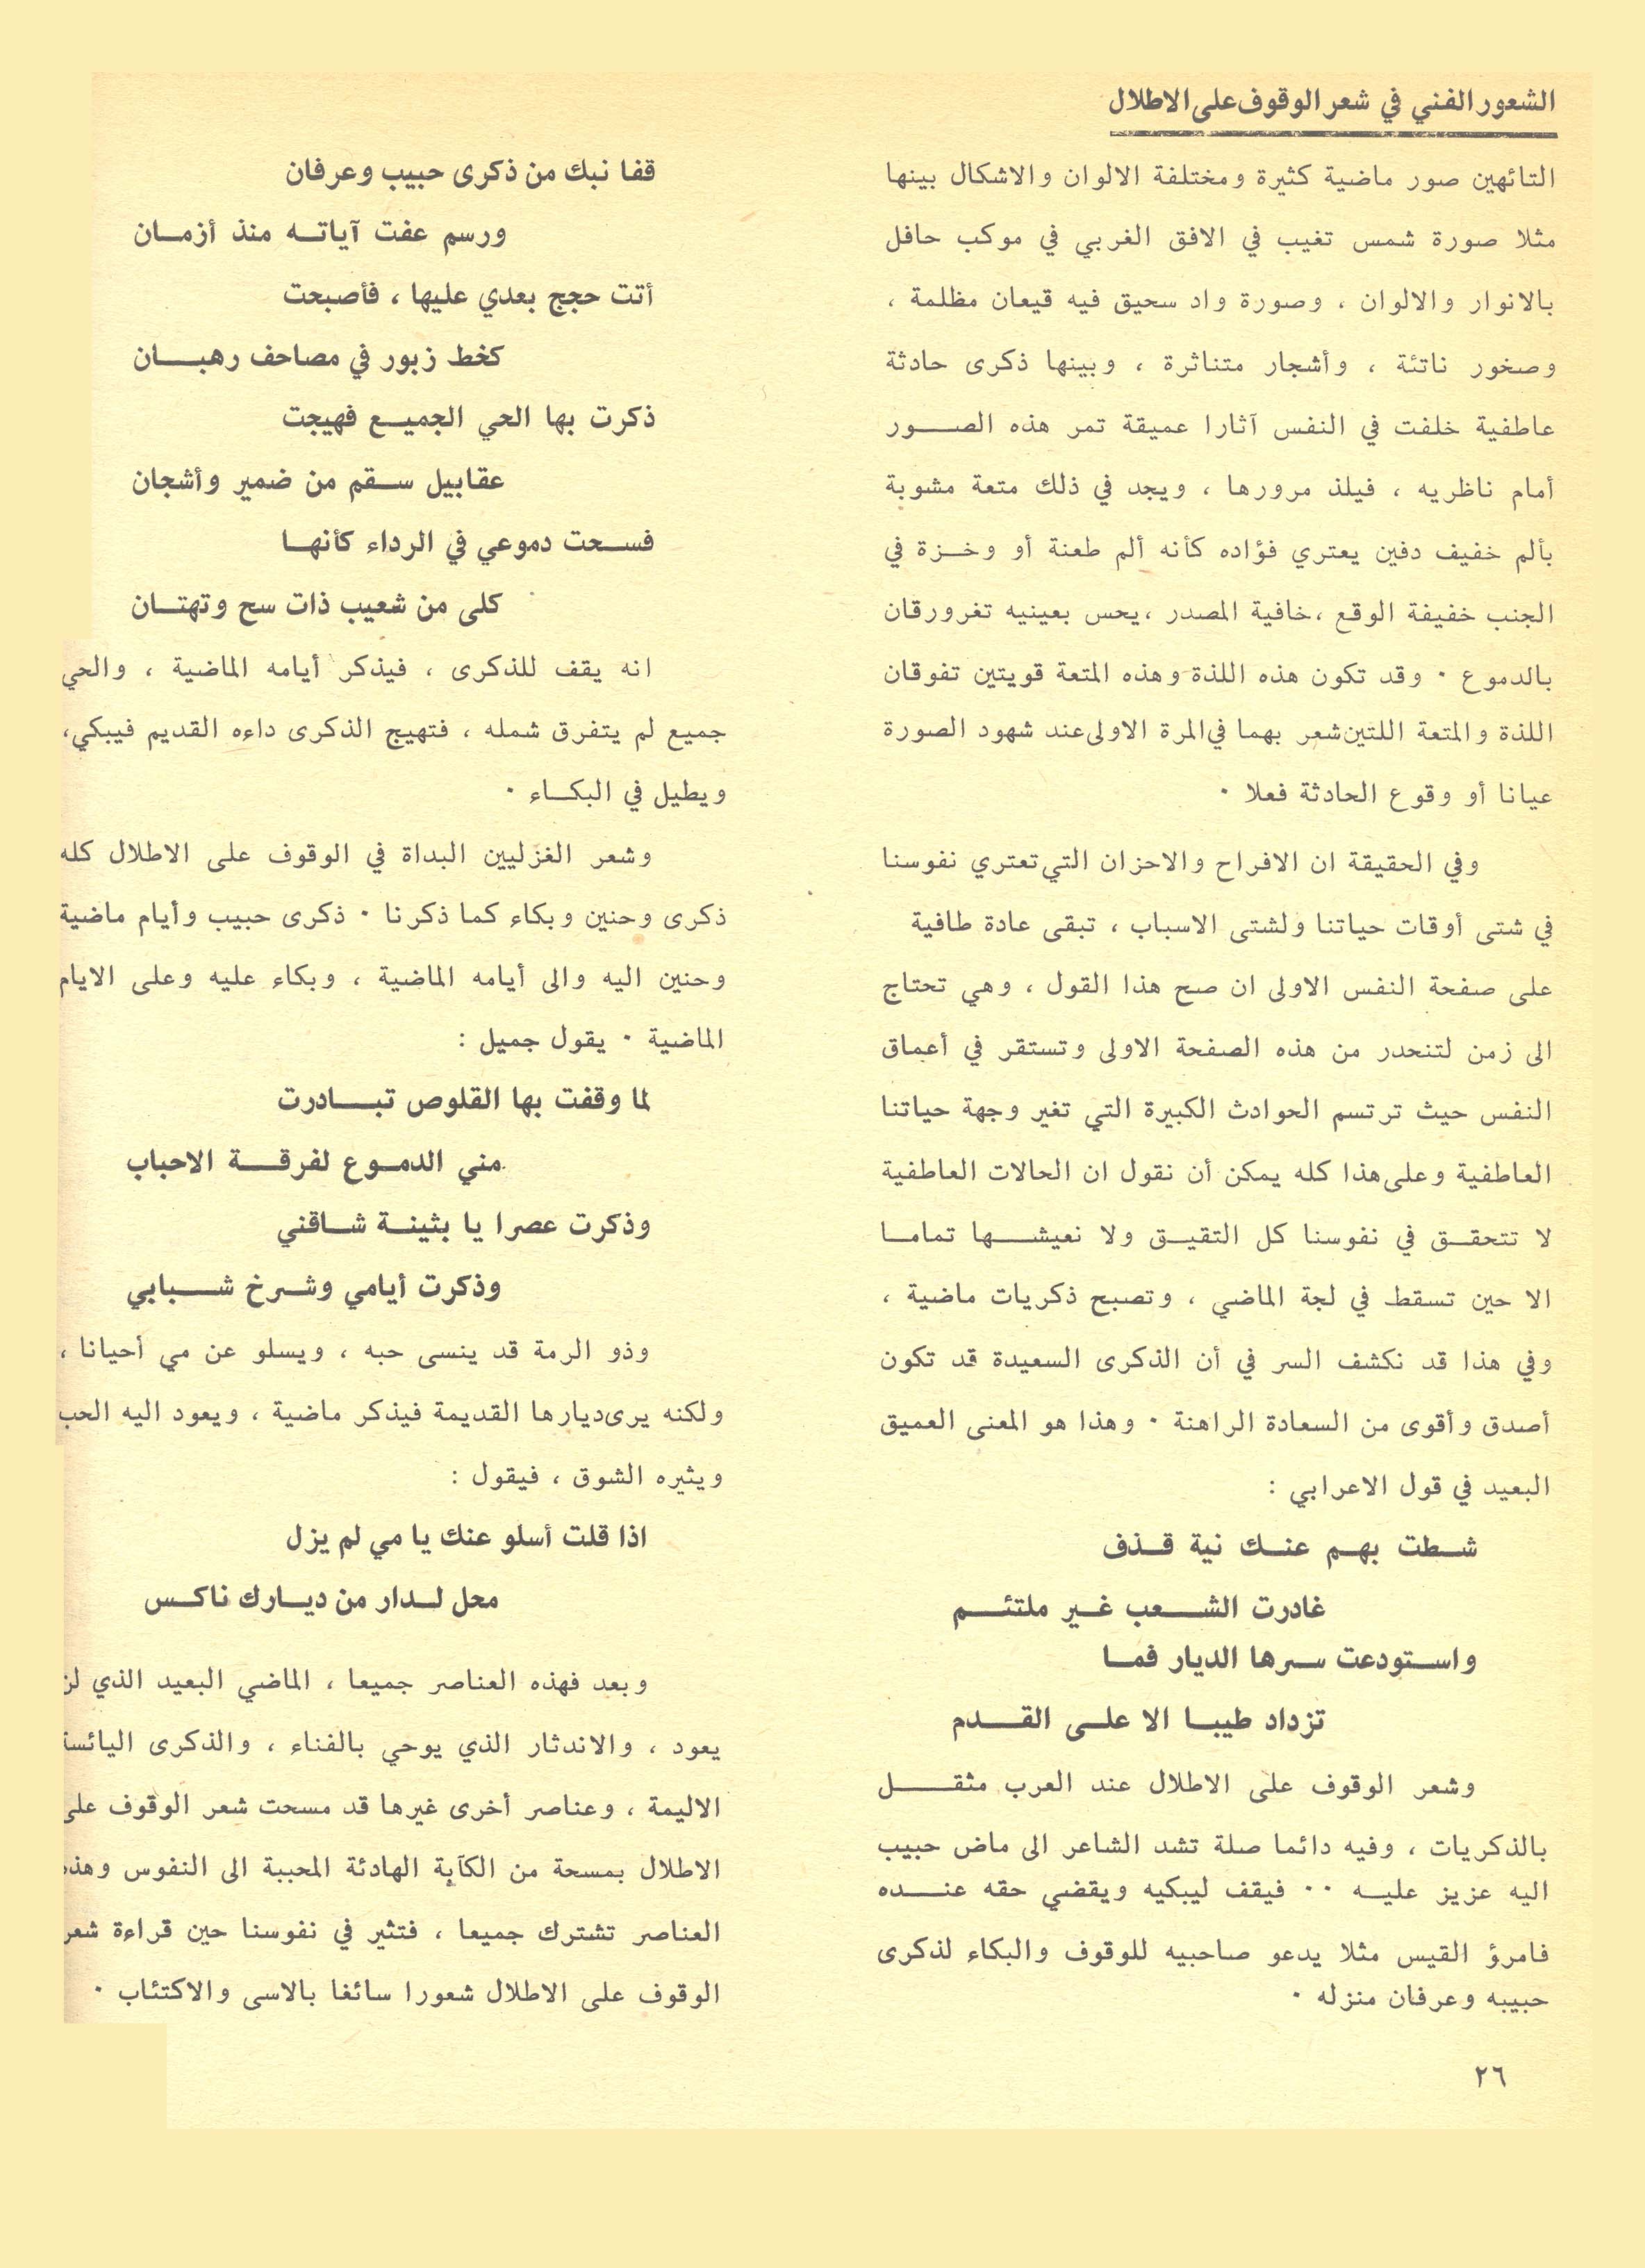 الشعور الفني في شعر الوقوف على الاطلال
التائهين صور ماضية كثيرة ومختلفة الالوان والاشكال بينها
مثلا صورة شمس تغيب في الافق الغربي في موكب حافل
بالانوار والالوان ، وصورة واد سحيق فيه قيعان مظلمة ،
وصخور ناتئة ، وأشجار متناثرة ، وبينها ذكرى حادثة
عاطفية خلفت في النفس آثارا عميقة تمر هذه الصور
أمام ناظريه ، فيلذ مرورها ، ويجد في ذلك متعة مشوبة
بألم خفيف دفين يعتري فؤاده كأنه ألم طعنة أو وخزة في
الجنب خفيفة الوقع ،خافية المصدر ،يحس بعينيه تغرورقان
بالدموع . وقد تكون هذه اللذة وهذه المتعة قويتين تفوقان
اللذة والمتعة اللتين شعر بهما في المرة الاولى عند شهود الصورة
عيانا أو وقوع الحادثة فعلا .
وفي الحقيقة ان الافراح والاحزان التي تعتري نفوسنا
في شتى أوقات حياتنا ولشتى الاسباب ، تبقى عادة طافية
على صفحة النفس الاولى ان صح هذا القول ، وهي تحتاج
الى زمن لتنحدر من هذه الصفحة الاولى وتستقر في أعماق
النفس حيث ترتسم الحوادث الكبيرة التي تغير وجهة حياتنا
العاطفية وعلى هذا كله يمكن أن نقول ان الحالات العاطفية
لا تتحقق في نفوسنا كل التقيق ولا نعيشها تماما
الا حين تسقط في لجة الماضي ، وتصبح ذكريات ماضية ،
وفي هذا قد نكشف السر في أن الذكرى السعيدة قد تكون
أصدق وأقوى من السعادة الراهنة . وهذا هو المعنى العميق
البعيد في قول الاعرابي :
شطت بهم عنك نية قذف
غادرت الشعب غير ملتئم
واستودعت سرها الديار فما
تزداد طيبا الا على القدم
وشعر الوقوف على الاطلال عند العرب مثقل
بالذكريات ، وفيه دائما صلة تشد الشاعر الى ماض حبيب
اليه عزيز عليه .. فيقف ليبكيه ويقضي حقه عنده
فامرؤ القيس مثلا يدعو صاحبيه للوقوف والبكاء لذكرى
حبيبه وعرفان منزله .
قفا نبك من ذكرى حبيب وعرفان
ورسم عفت آياته منذ أزمان
أتت حجج بعدي عليها ، فأصبحت
كخط زبور في مصاحف رهبان
ذكرت بها الحي الجميع فهيجت
عقابيل سقم من ضمير وأشجان
فسحت دموعي في الرداء كأنها
كلى من شعيب ذات سح وتهتان
انه يقف للذكرى ، فيذكر أيامه الماضية ، والحي
جميع لم يتفرق شمله ، فتهيج الذكرى داءه القديم فيبكي،
ويطيل في البكاء .
وشعر الغزليين البداة في الوقوف على الاطلال كله
ذكرى وحنين وبكاء كما ذكرنا . ذكرى حبيب وأيام ماضية
وحنين اليه والى أيامه الماضية ، وبكاء عليه وعلى الايام
الماضية . يقول جميل :
لما وقفت بها القلوص تبادرت
مني الدموع لفرقة الاحباب
وذكرت عصرا يا بثينة شاقني
وذكرت أيامي وشرخ شبابي
وذو الرمة قد ينسى حبه ، ويسلو عن مي أحيانا ،
ولكنه يرى ديارها القديمة فيذكر ماضية ، ويعود اليه الحب
ويثيره الشوق ، فيقول :
اذا قلت أسلو عنك يا مي لم يزل
محل لدار من ديارك ناكس
وبعد فهذه العناصر جميعا ، الماضي البعيد الذي لن
يعود ، والاندثار الذي يوحي بالفناء ، والذكرى اليائسة
الاليمة ، وعناصر أخرى غيرها قد مسحت شعر الوقوف على
الاطلال بمسحة من الكآبة الهادئة المحببة الى النفوس وهذه
العناصر تشترك جميعا ، فتثير في نفوسنا حين قراءة شعر
الوقوف على الاطلال شعورا سائغا بالاسى والاكتئاب .
٢٦